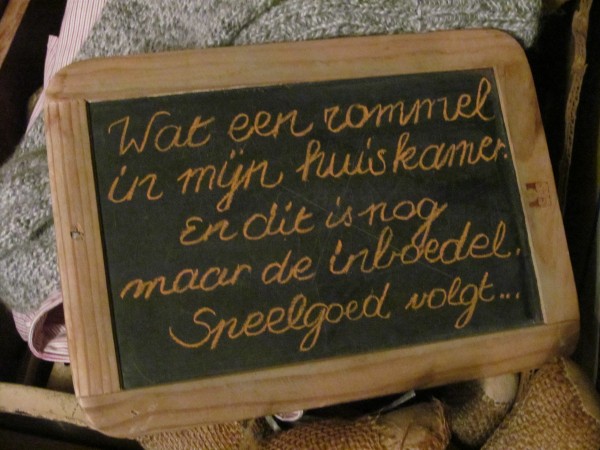 Wat een rommel
in mijn huiskamer.
En dit is nog
maar de inboedel.
Speelgoed volgt...